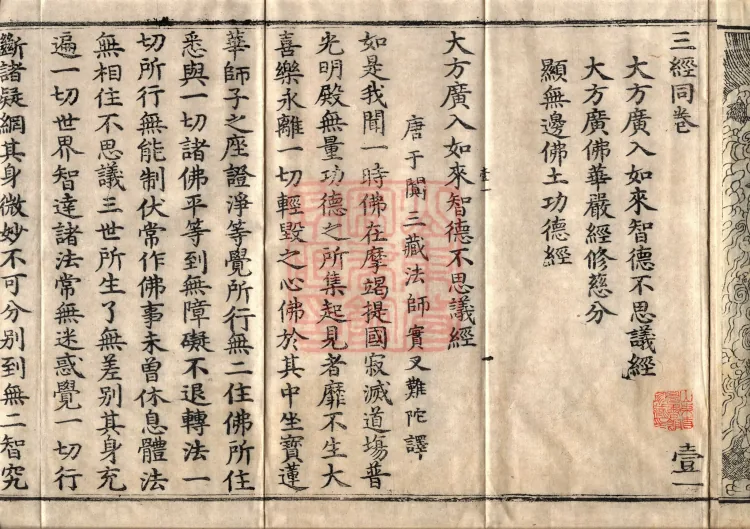 三經同卷
大方廣入如來智德不思議經
大方廣佛華嚴經修慈分
顯無邊佛土功德經
壹一
大方廣入如來智德不思議經
唐于闐三藏法師實叉難陀譯
如是我聞一時佛在摩竭提國寂滅道場普
光明殿無量功德之所集起見者靡不生大
喜樂永離一切輕毀之心佛於其中坐寶蓮
華師子之座證淨等覺所行無二住佛所住
悉與一切諸佛平等到無障礙不退轉法一
切所行無能制伏常作佛事未曾休息體法
無相住不思議三世所生了無差別其身充
遍一切世界智達諸法常無迷惑覺一切行
斷諸疑網其身微妙不可分別到無二智究